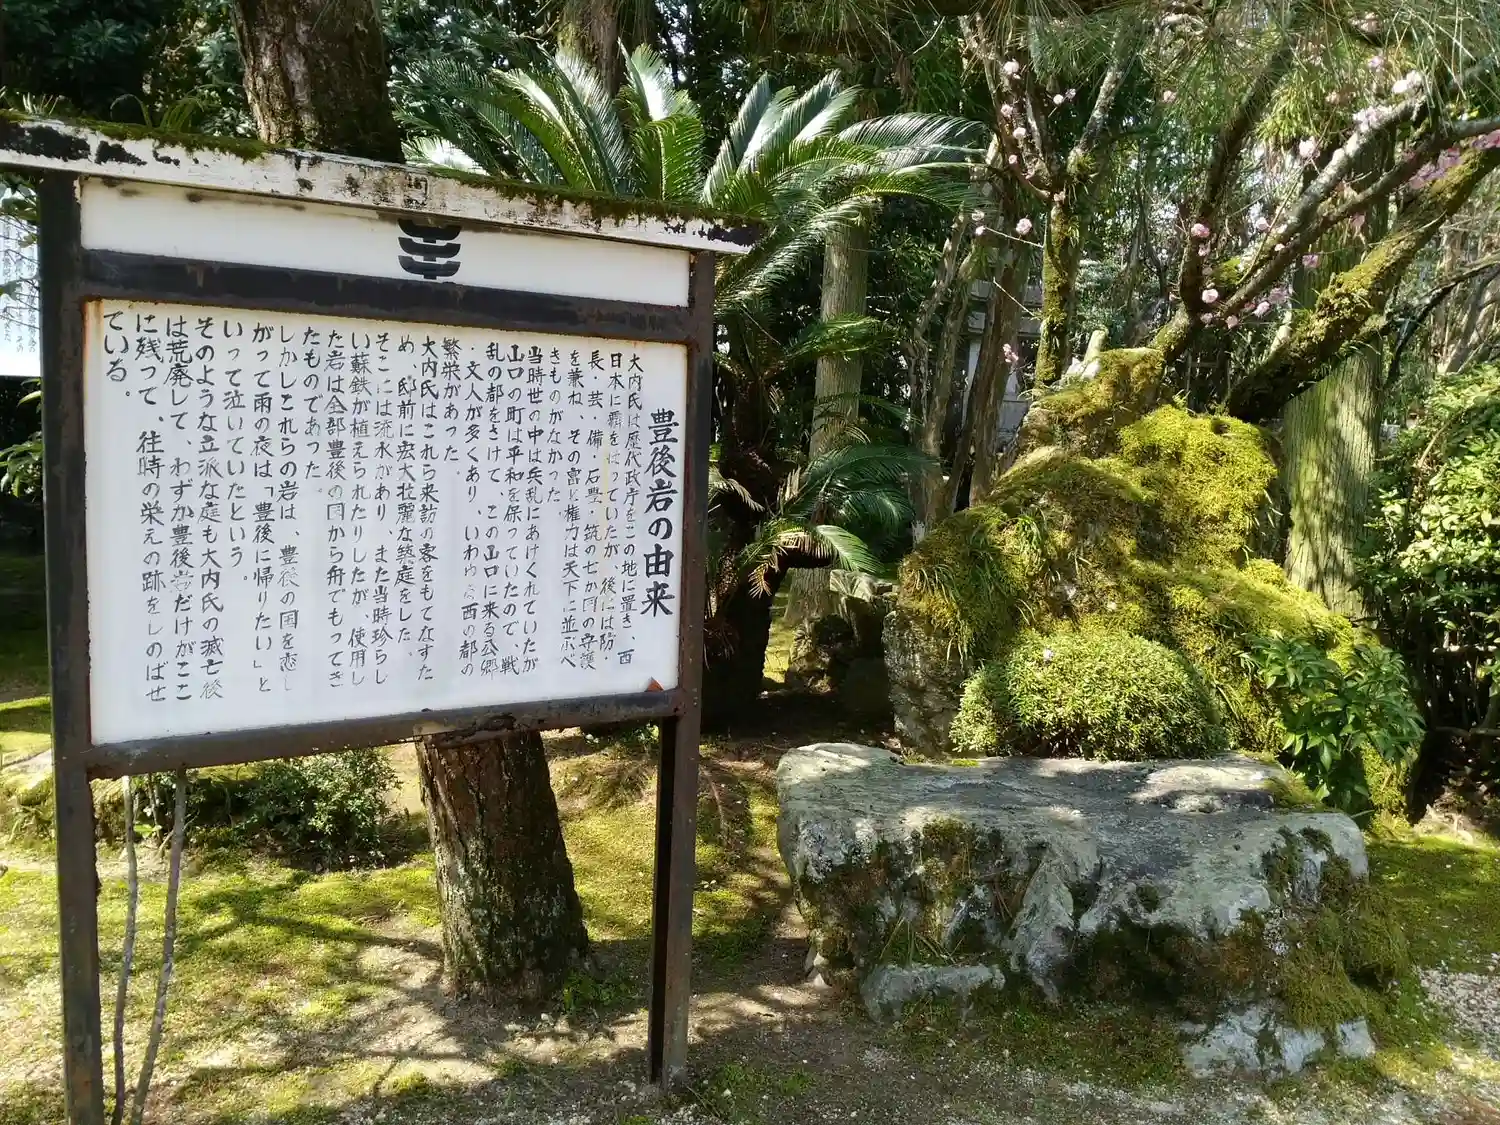 豊後岩の由来
大内氏は歴代政庁をこの地に置き、西
日本に覇をはっていたが、後には防・
長・芸・備・石・豊・筑の七か国の守護
を兼ね、その富と権力は天下に並ぶべ
きものがなかった。
当時世の中は兵乱にあけくれていたが
山口の町は平和を保っていたので、戦
乱の都をさけて、この山口に来る公卿
・文人が多くあり、いわゆる西の都の
繁栄があった。
大内氏はこれら来訪の客をもてなすた
め、邸前に宏大壮麗な築庭をした。
そこには流水があり、また当時珍らし
い蘇鉄が植えられたりしたが、使用し
た岩は全部豊後の国から舟でもってき
たものであった。
しかしこれらの岩は、豊後の国を恋し
がって雨の夜は「豊後に帰りたい」と
いって泣いていたという。
そのような立派な庭も大内氏の滅亡後
は荒廃して、わずか豊後岩だけがここ
に残って、往時の栄えの跡をしのばせ
ている。